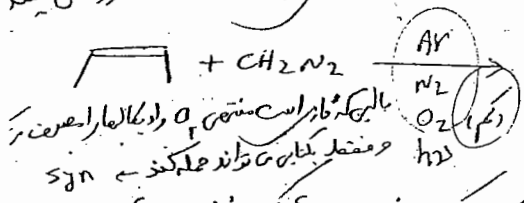 + CH2N2
Ar
N2
O2 (کم)
hν
با اینکه گاز است منتهی O2 رادیکالها را مصرف
و فقط یکتایی می تواند حمله کند ← syn